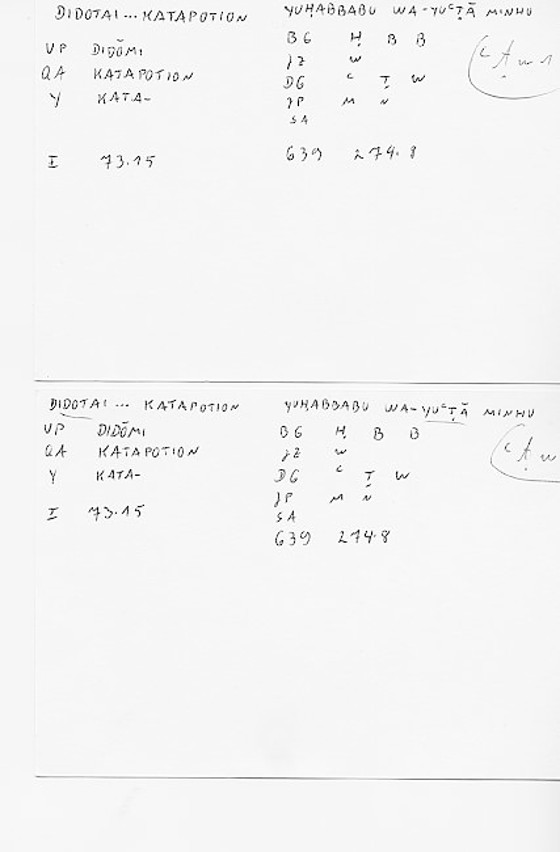 DIDOTAI ... KATAPOTION YUḤABBABU WA-YUᶜṬĀ MINHU
VP DIDŌMI BG Ḥ B B
QA KATAPOTION JZ W
Y KATA- DG ᶜ Ṭ W
JP M N
SA
I 73.15 639 274.8
DIDOTAI ... KATAPOTION YUḤABBABU WA-YUᶜṬĀ MINHU
VP DIDŌMI BG Ḥ B B
QA KATAPOTION JZ W
Y KATA- DG ᶜ Ṭ W
JP M N
I 73.15 SA
639 274.8